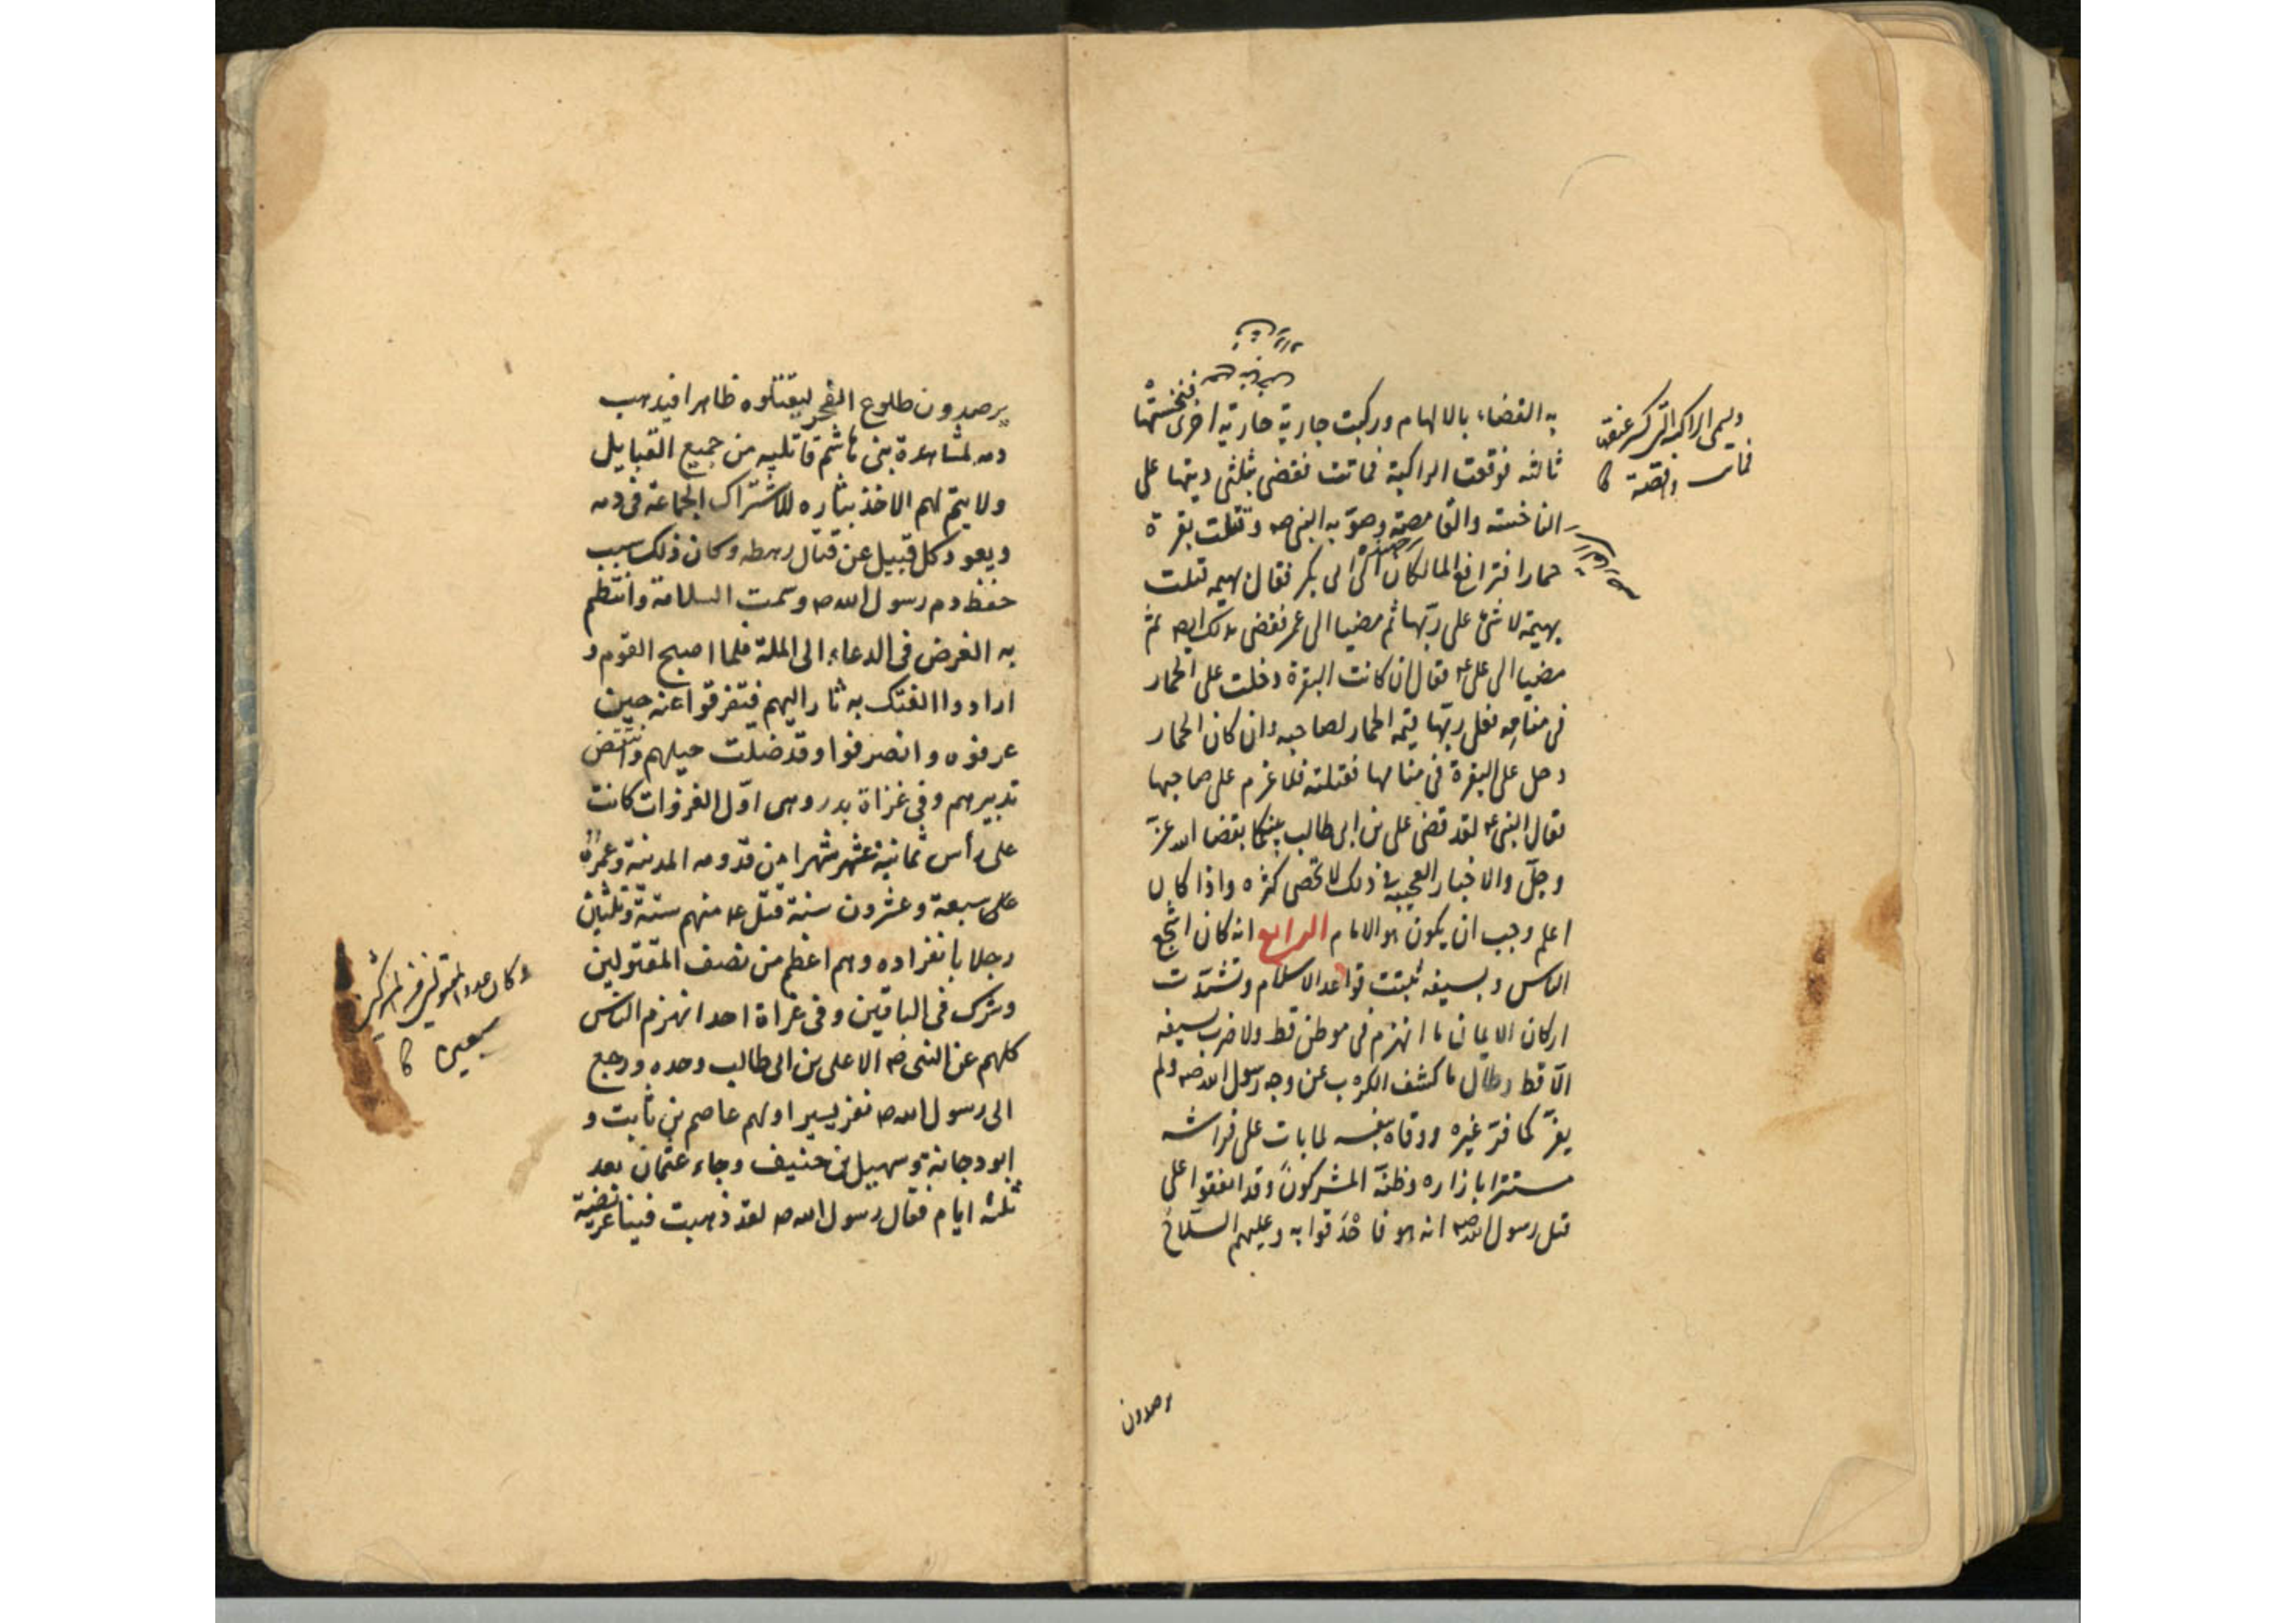 به القضاء بالالهام وركبت جارية جارية اخرى فنخستها
ثالثه فوقعت الراكبة فماتت فقضى بثلثى ديتها على
الناخسته والقامصة وصوّبه النبى صه وقتلت بقرة
حمارا فترافع المالكان الى ابى بكر فقال بهيمه قتلت
بهيمة لا شئ على ربّها ثم مضيا الى عمر فقضى بذلك ايضه ثم
مضيا الى على ع فقال ان كانت البقرة دخلت على الحمار
فى منامه فعلى ربّها قيمه الحمار لصاحبه وان كان الحمار
دخل على البقرة فى منامها فقتلته فلا غرم على صاحبها
فقال النبى ع لقد قضى على بن ابى طالب بينكما بقضا الله عزّ
وجلّ والاخبار العجيبة فى ذلك لا تحصى كثره واذا كان
اعلم وجب ان يكون هو الامام الرابع انه كان اشجع
الناس وبسيفه ثبتت قواعد الاسلام وتشدّدت
اركان الايمان ما انهزم فى موطن قط ولا ضرب بسيفه
الّا قط وطال ما كشف الكرب عن وجه رسول الله صه ولم
يفرّ كما فرّ غيره ووقاه بنفسه لما بات على فراشه
مستترا بازاره وظنّه المشركون وقد اتفقوا على
قتل رسول الله صه انه هو فاحدقوا به وعليهم السلاح
يرصدون
يرصدون طلوع الفجر ليقتلوه ظاهرا فيذهب
دمه لمشاهدة بنى هاشم قاتليه من جميع القبايل
ولا يتم لهم الاخذ بثاره للاشتراك الجماعة فى دمه
ويعود كل قبيل عن قتال رهطه وكان ذلك سبب
حفظ دم رسول الله صه وتمت السلامة وانتظم
به الغرض فى الدعاء الى الملة فلما اصبح القوم و
ارادوا الفتك به ثار اليهم فتفرقوا عنه حين
عرفوه وانصرفوا وقد ضلّت حيلهم وانتقض
تدبيرهم وفى غزاة بدر وهى اوّل الغزوات كانت
على رأس ثمانية عشر شهرا من قدومه المدينة وعمره
على سبعة وعشرون سنة قتل ع منهم ستة وثلثين
رجلا بانفراده وهم اعظم من نصف المقتولين
وشرك فى الباقين وفى غزاة احد انهزم الناس
كلهم عن النبى صه الا على بن ابى طالب وحده ورجع
الى رسول الله صه نفر يسير اولهم عاصم بن ثابت و
ابو دجانة وسهيل بن حنيف وجاء عثمان بعد
ثلثه ايام فقال رسول الله صه لقد ذهبت فيها عريضة
وكان عدد المقتولين من المشركين
سبعين